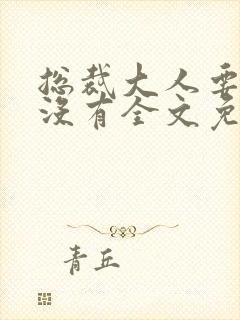 总裁大人要
没有全文免
青丘